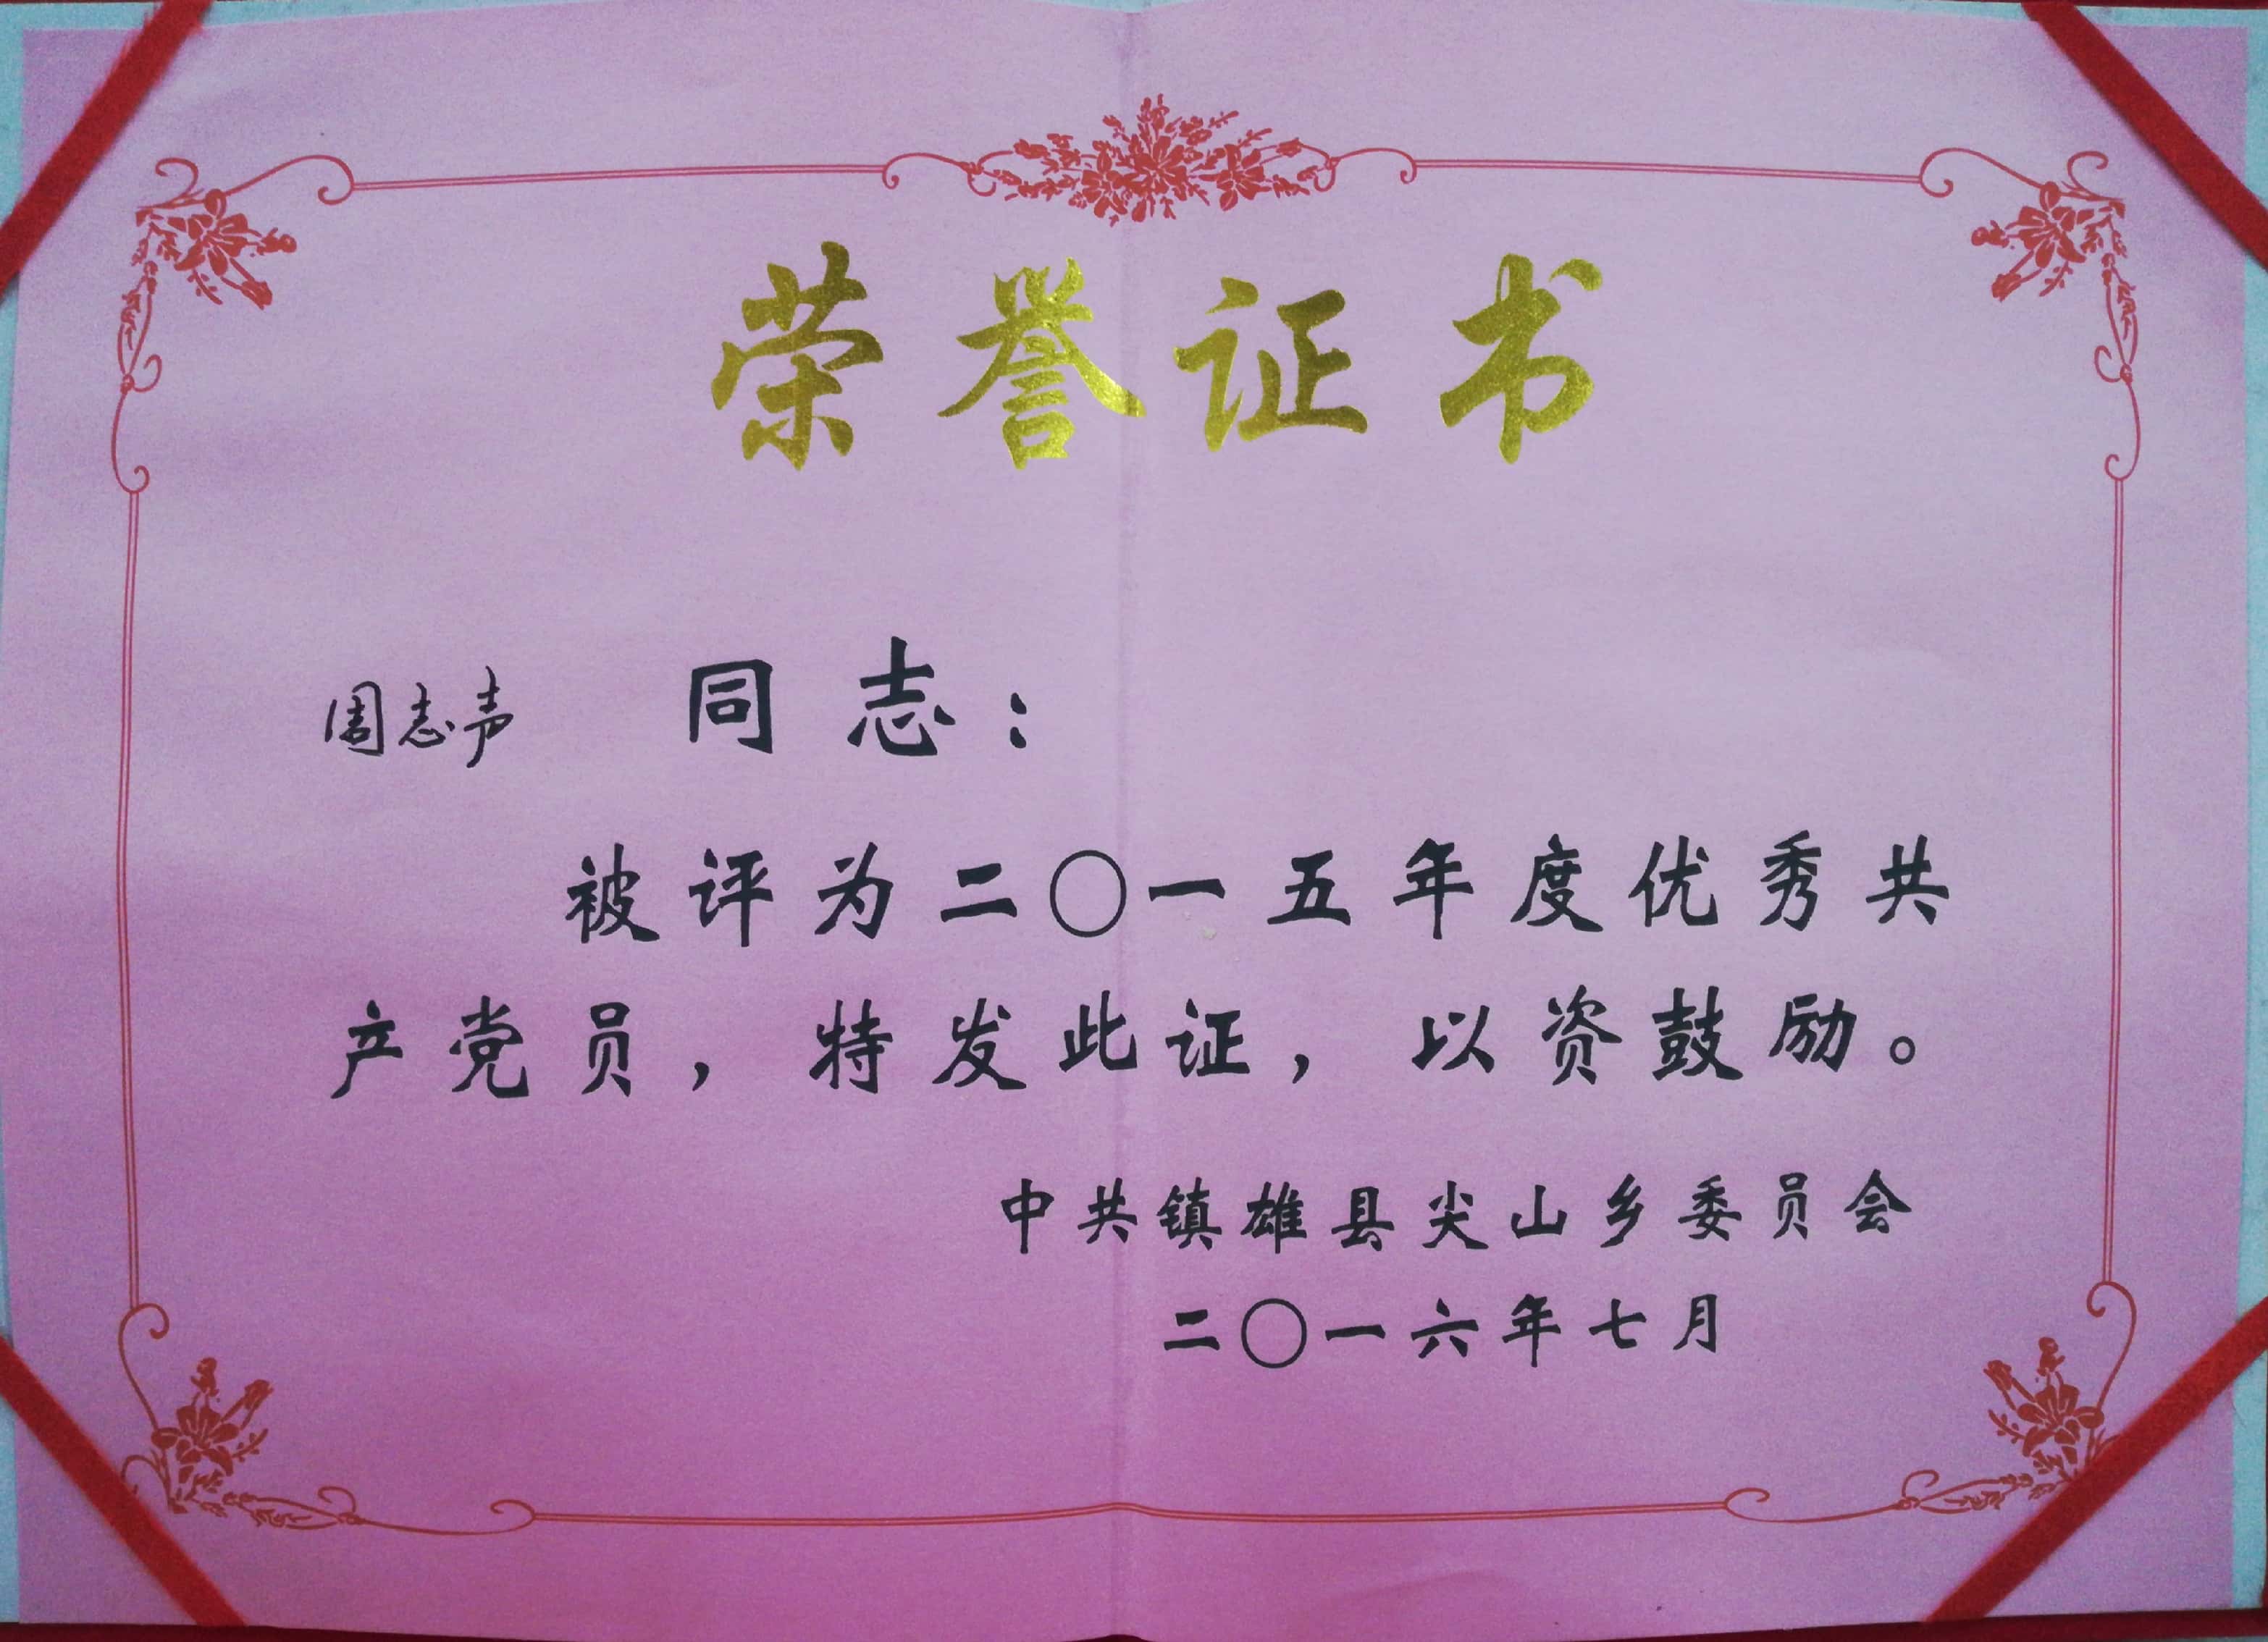 荣誉证书
周志声 同志：
被评为二〇一五年度优秀共
产党员，特发此证，以资鼓励。
中共镇雄县尖山乡委员会
二〇一六年七月